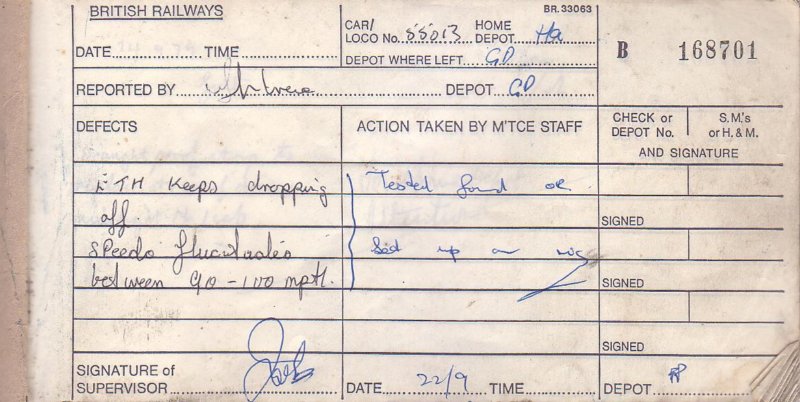 BRITISH RAILWAYS
BR.33063
DATE TIME
CAR/ LOCO No. 55013 HOME DEPOT. Ha
DEPOT WHERE LEFT. GD
B 168701
REPORTED BY DEPOT GD
DEFECTS
ACTION TAKEN BY M'TCE STAFF
CHECK or DEPOT No.
S.M.'s or H.& M.
AND SIGNATURE
ETH keeps dropping
Tested found ok
off.
SIGNED
Speedo fluctuates
Set up on
between 90 - 100 mph.
SIGNED
SIGNED
SIGNATURE of
SUPERVISOR
DATE 22/9 TIME
DEPOT